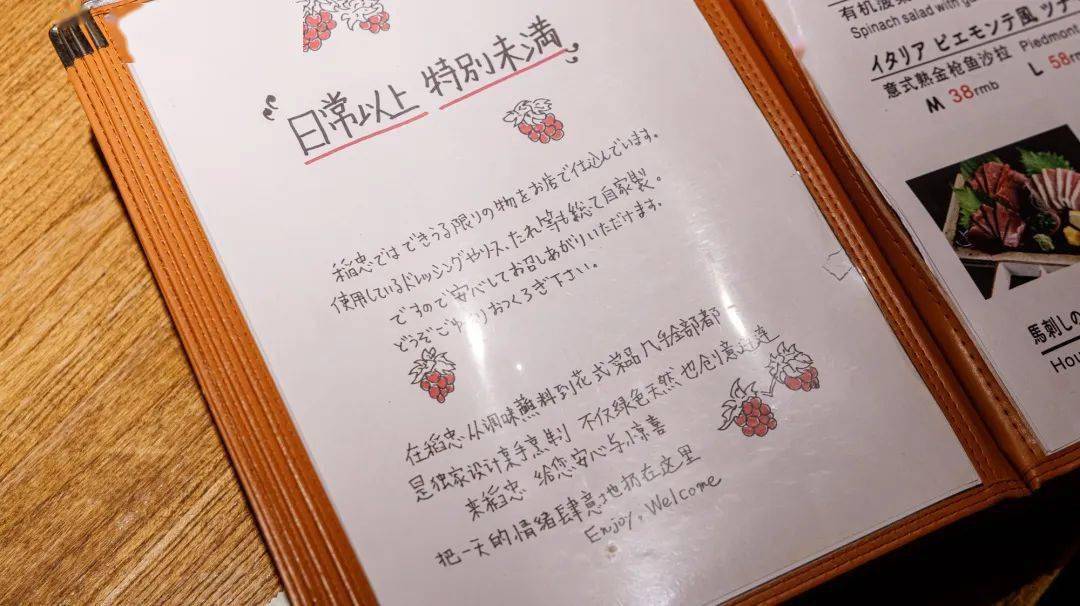 "日常以上 特別未満"
稲忠ではできうる限りの物をお店で仕込んでいます。
使用しているドレッシングやソース、たれ等も総て自家製。
ですので安心してお召しあがりいただけます。
どうぞごゆっくりおつくろぎ下さい。
在稻忠 从调味蘸料到花式菜品 几乎全部都
是独家设计亲手烹制 不仅绿色天然 也创意连连
来稻忠 给您安心与小惊喜
把一天的情绪肆意地扔在这里
Enjoy, Welcome
有机菠菜
Spinach salad with
イタリア ピエモンテ風 ツナ
意式熟金枪鱼沙拉 Piedmont
M 38rmb L 58rm
馬刺しの
Hou